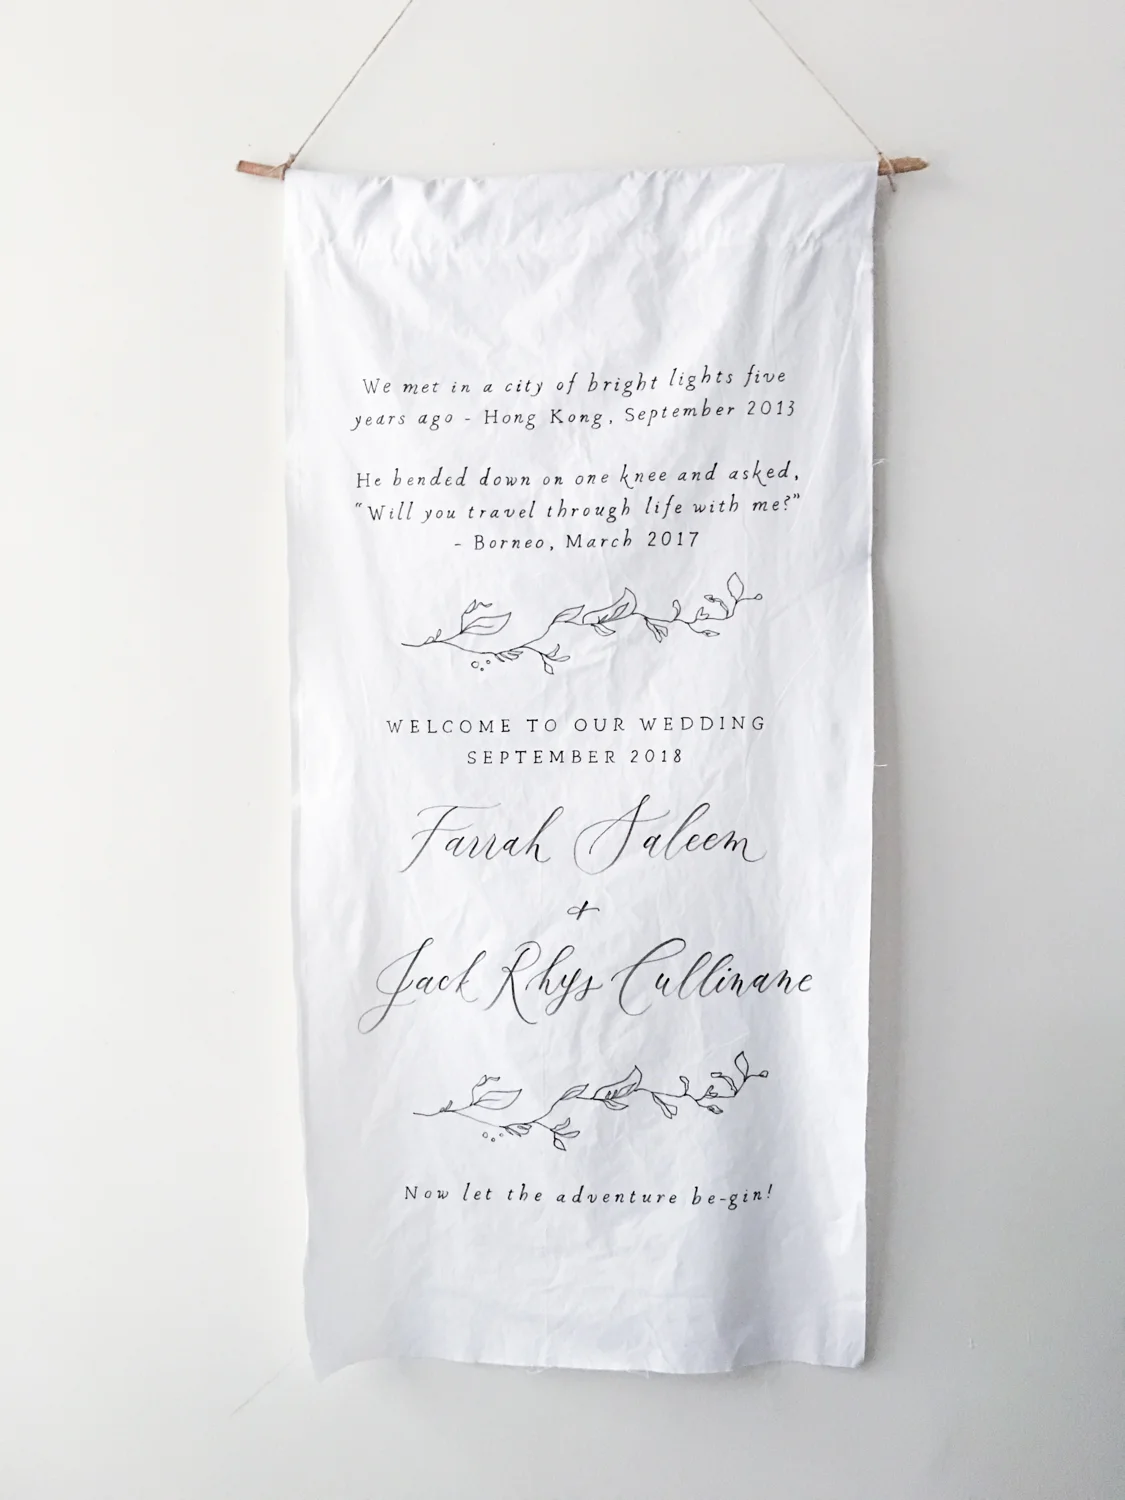 We met in a city of bright lights five
years ago - Hong Kong, September 2013
He bended down on one knee and asked,
"Will you travel through life with me?"
- Borneo, March 2017
WELCOME TO OUR WEDDING
SEPTEMBER 2018
Farrah Saleem
+
Jack Rhys Cullinane
Now let the adventure be-gin!